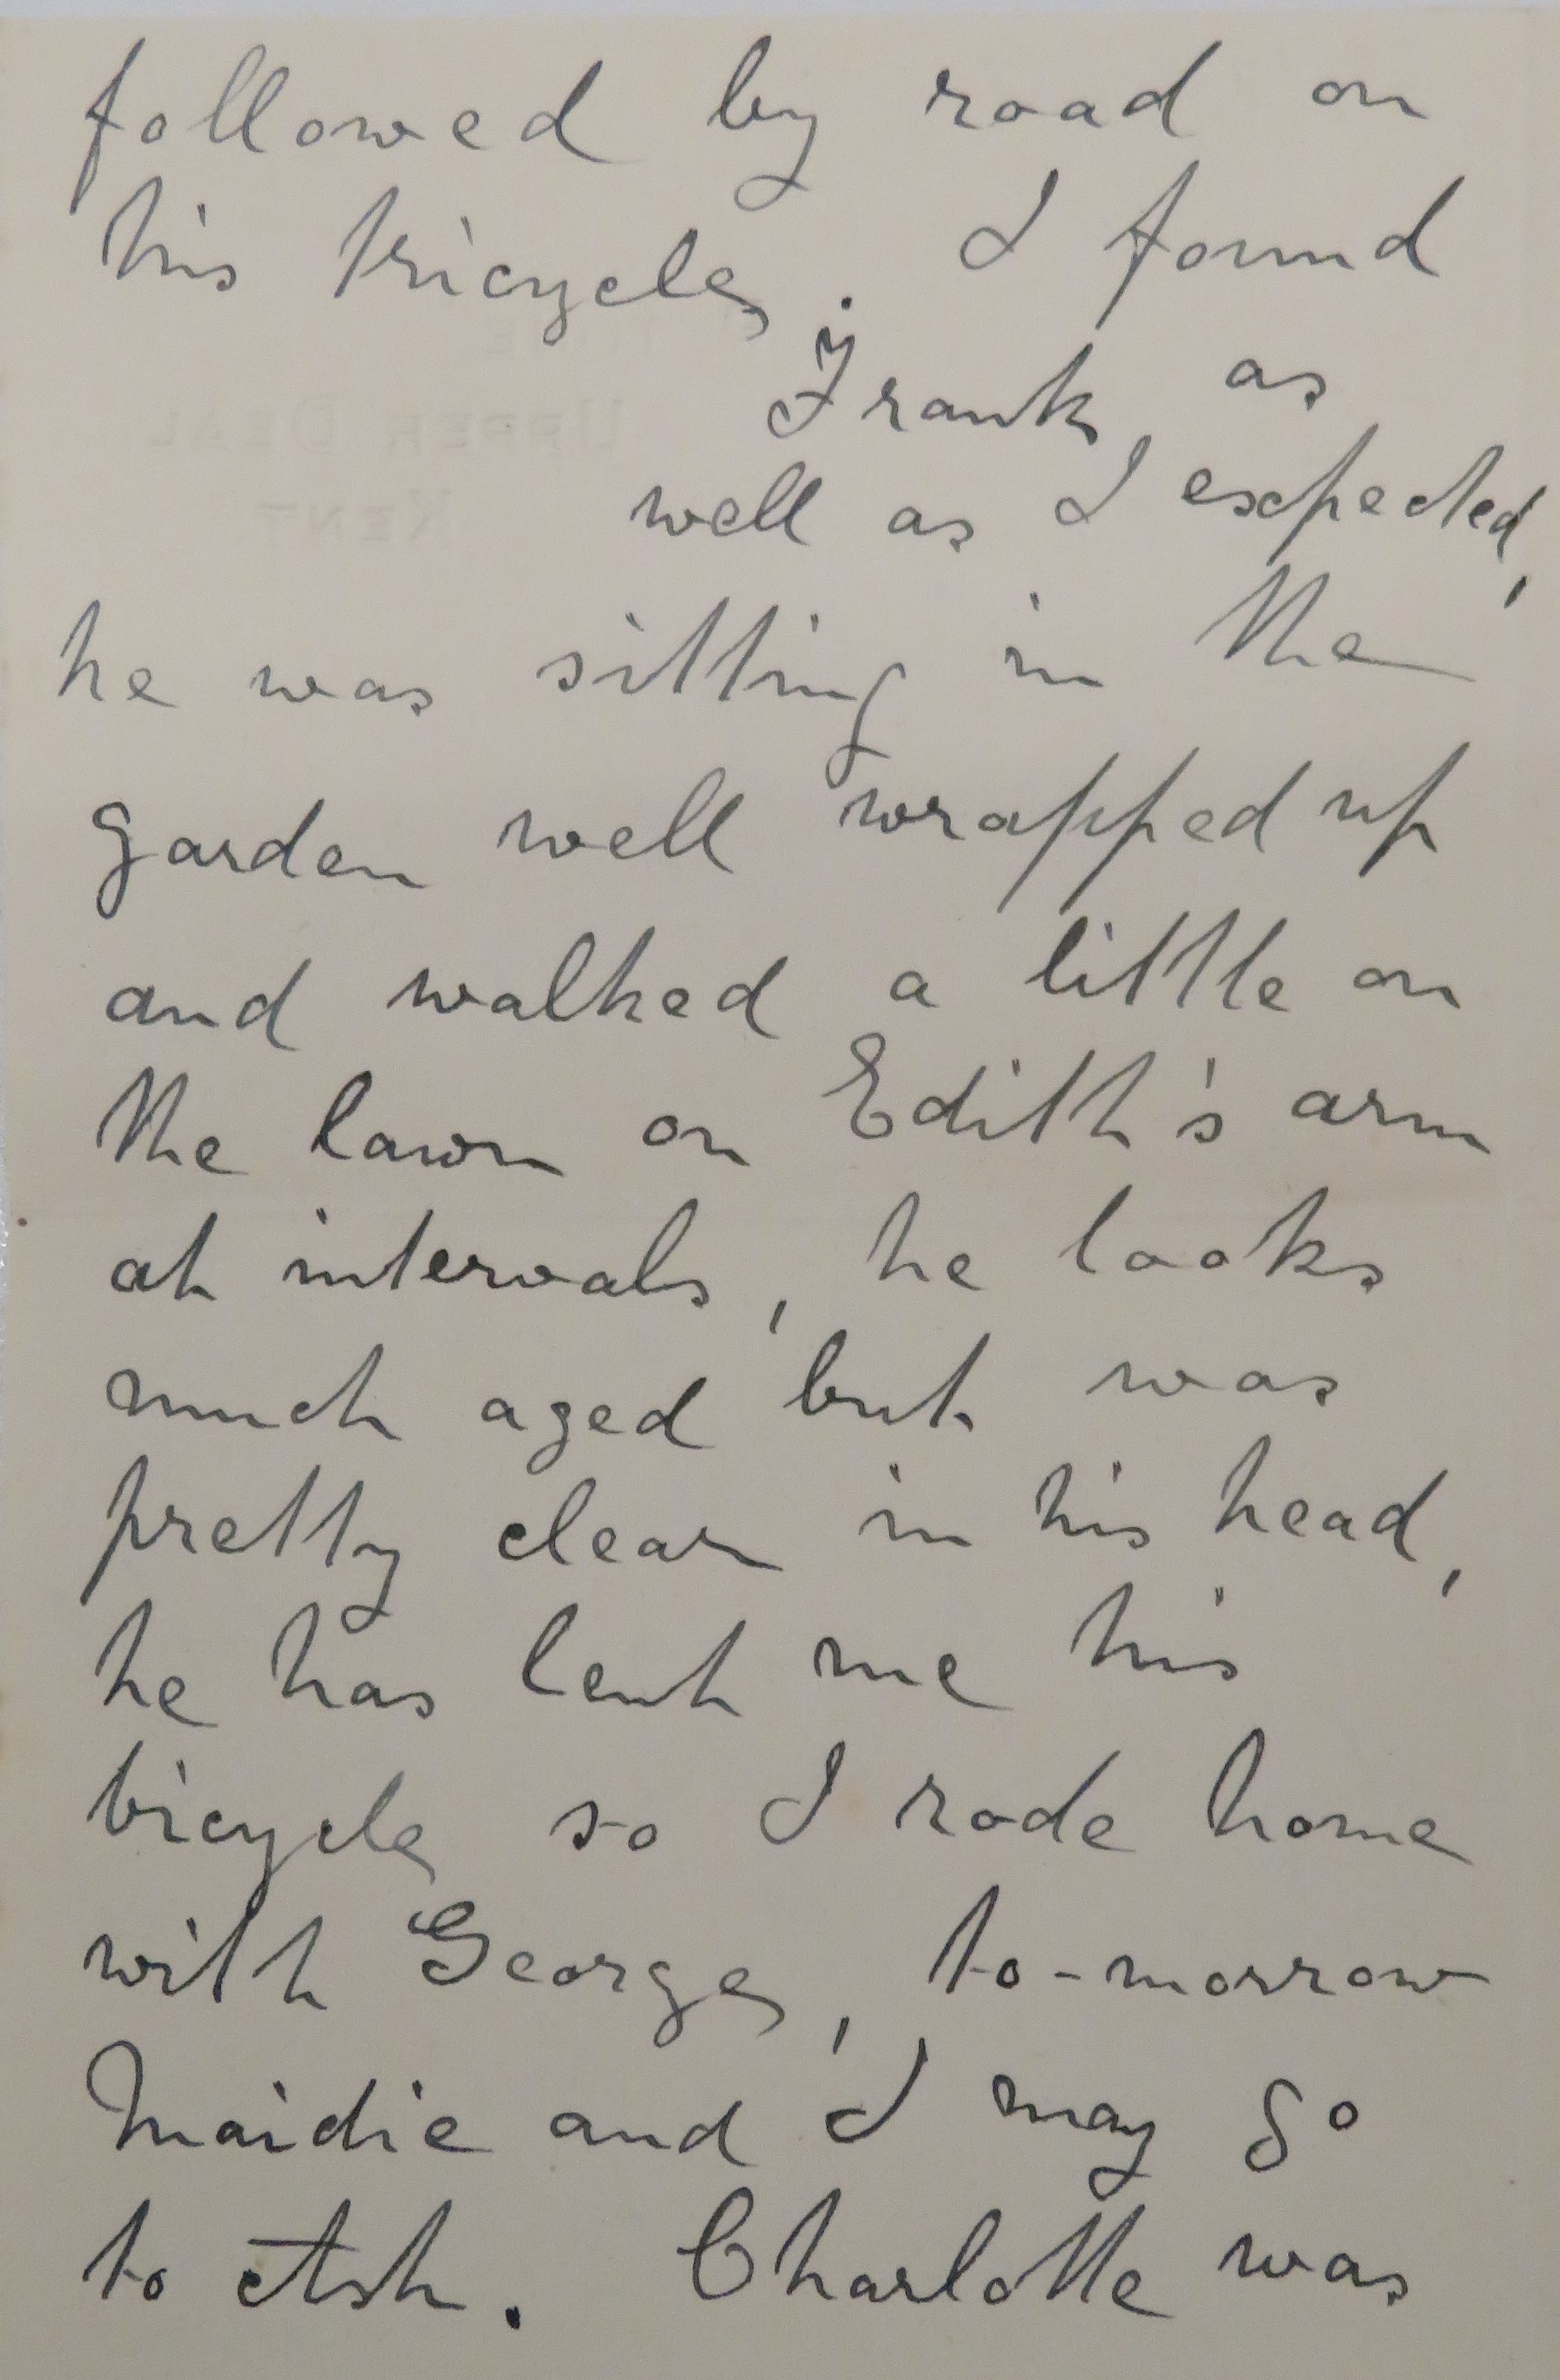 followed by road on
his tricycle. I found
Frank as
well as I expected,
he was sitting in the
garden well wrapped up
and walked a little on
the lawn on Edith's arm
at intervals, he looks
much aged but was
pretty clear in his head,
he has lent me his
bicycle so I rode home
with George, to-morrow
Maidie and I may go
to Ash. Charlotte was
UPPER DEAL
KENT